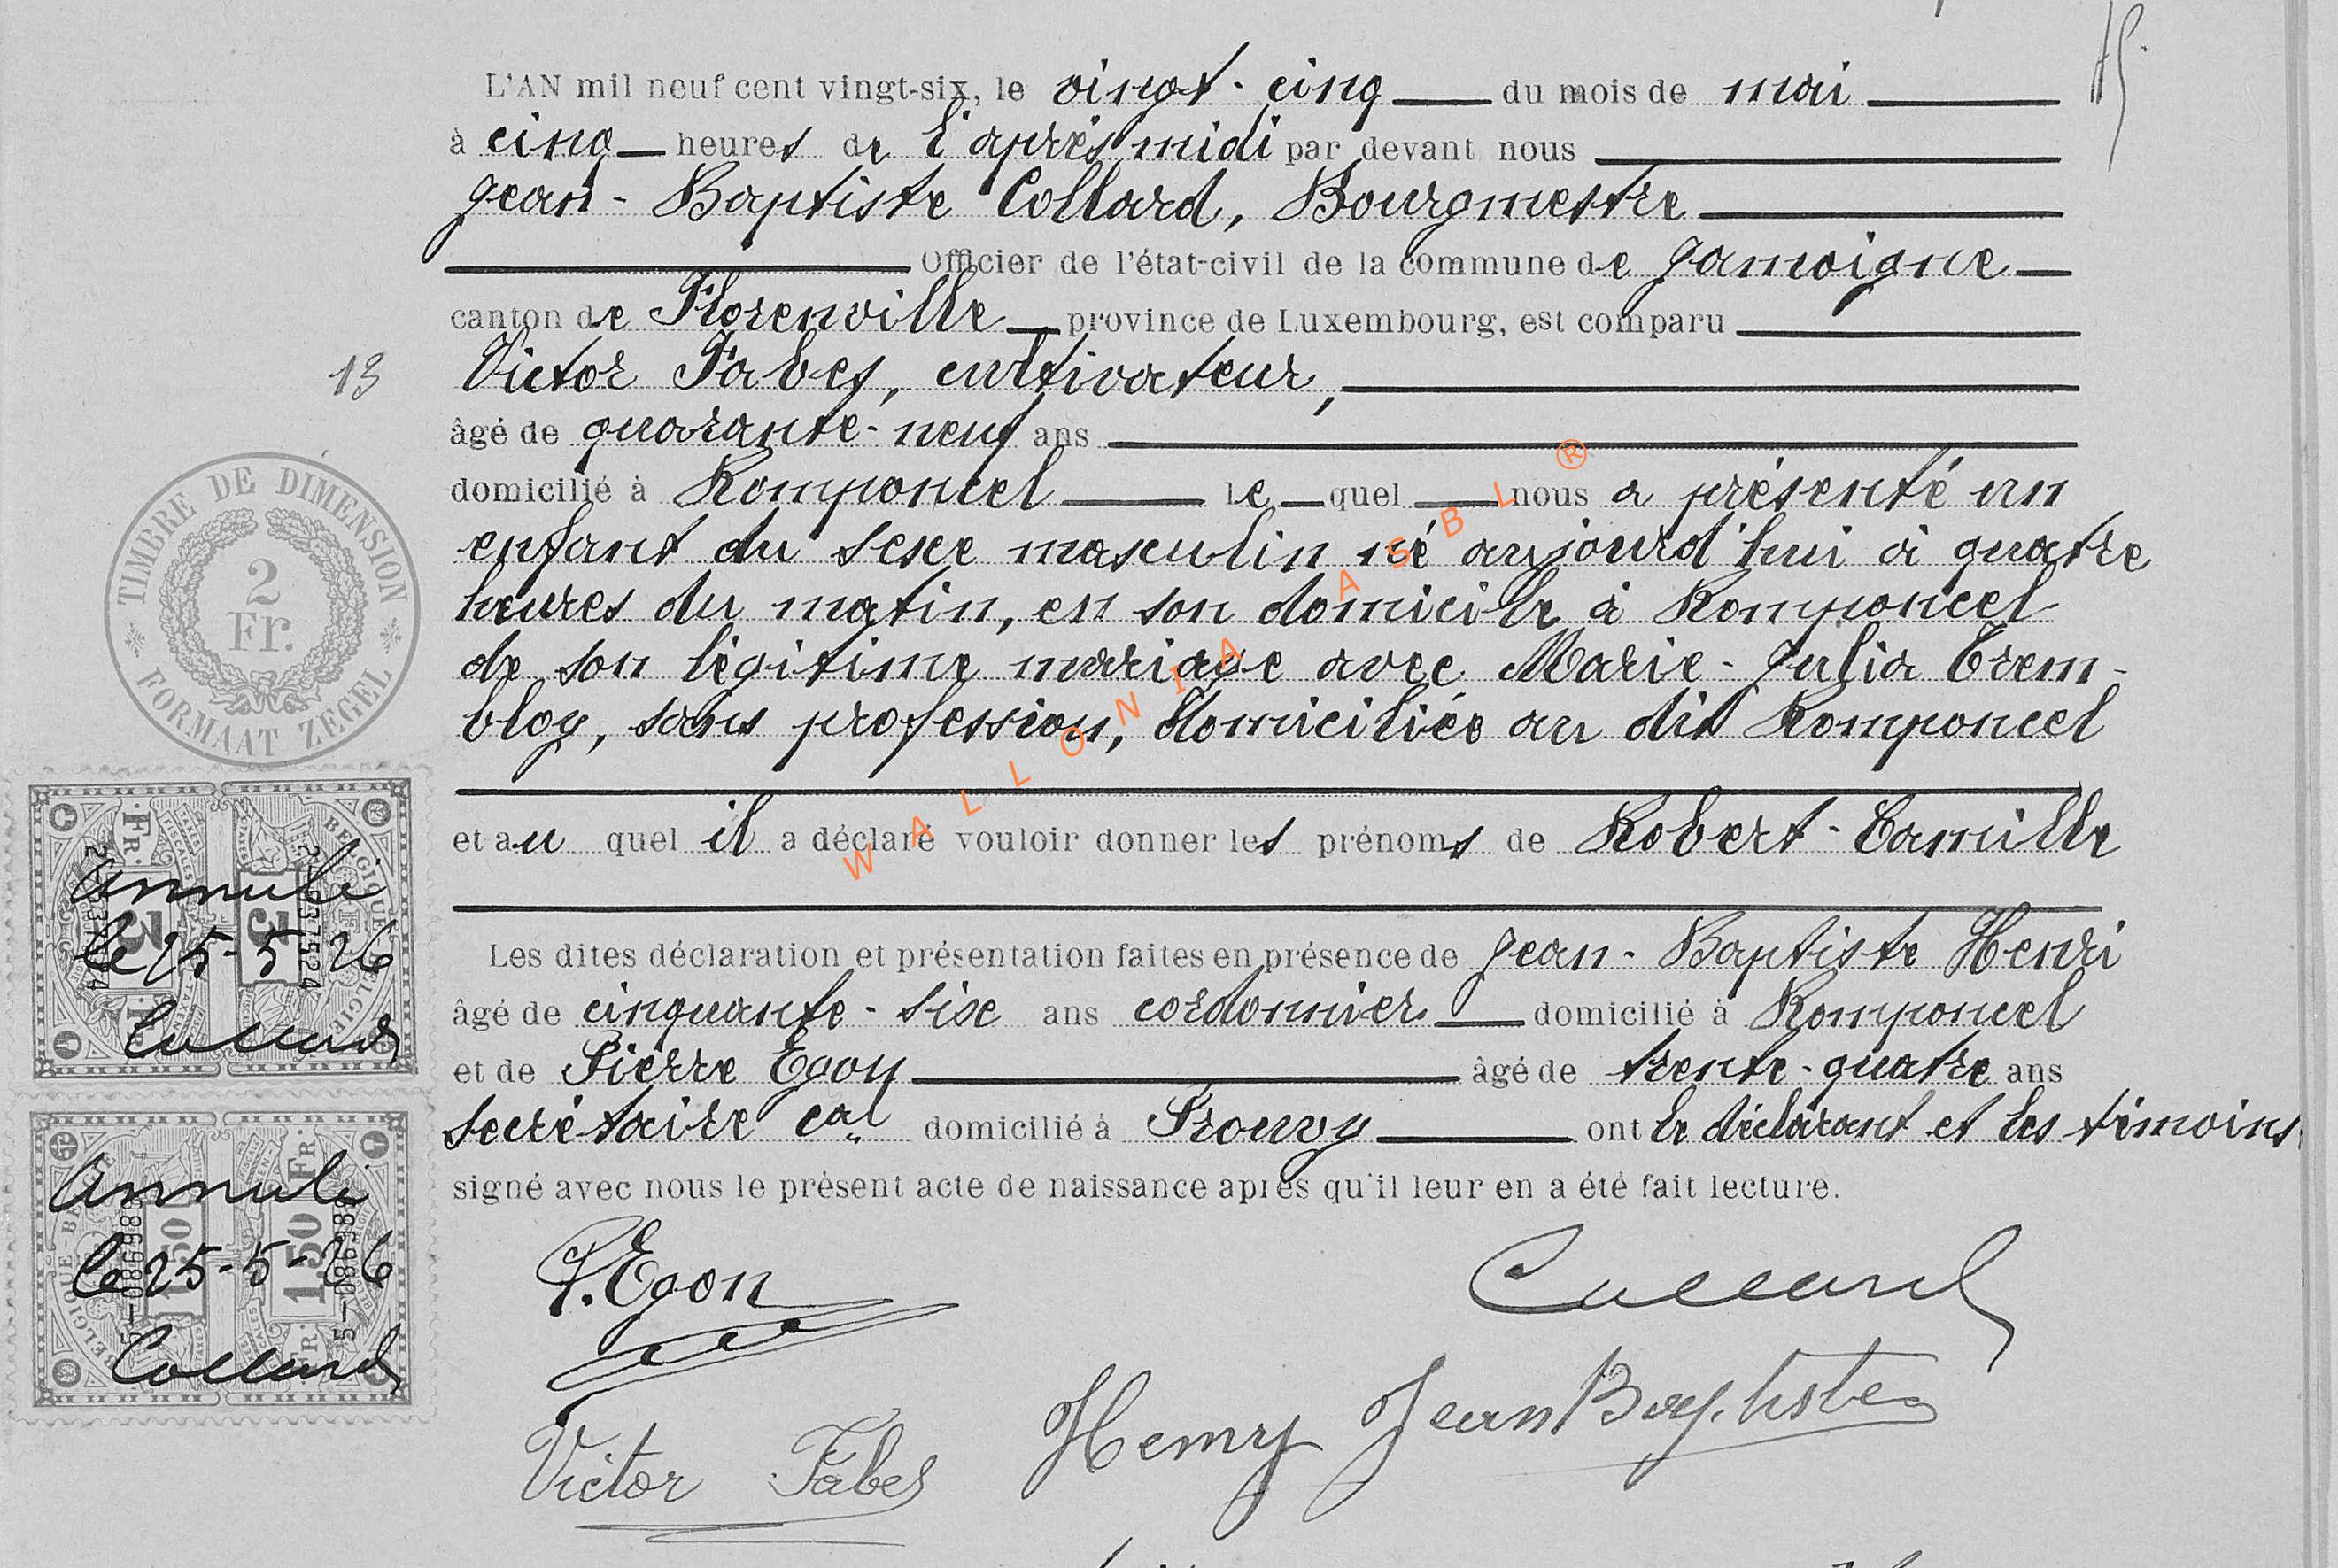 L'AN mil neuf cent vingt-six, le vingt-cinq du mois de mai
à cinq heures de l'après midi par devant nous
Jean-Baptiste Collard, Bourgmestre
Officier de l'état-civil de la commune de Jamoigne
canton de Florenville province de Luxembourg, est comparu
13
Victor Fabes, cultivateur,
âgé de quarante-neuf ans
domicilié à Romponcel le quel nous a présenté un
enfant du sexe masculin né aujourd'hui à quatre
heures du matin, en son domicile à Romponcel
de son légitime mariage avec Marie-Julia Trem-
bloy, sans profession, domiciliée au dit Romponcel
et au quel il a déclaré vouloir donner les prénoms de Robert-Camille
Les dites déclaration et présentation faites en présence de Jean-Baptiste Henri
âgé de cinquante-six ans cordonnier domicilié à Romponcel
et de Pierre Egon âgé de trente-quatre ans
secrétaire cal domicilié à Prouvy ont le déclarant et les témoins
signé avec nous le présent acte de naissance après qu'il leur en a été fait lecture.
P. Egon
Collard
Henry Jean Baptiste
Victor Fabes
TIMBRE DE DIMENSION
2
Fr.
FORMAAT ZEGEL
Annulé
le 25-5-26
Collard
Annulé
le 25-5-26
Collard
BELGIQUE-BELGIË
3
3
FR.
1.50
1.50
FR.
WALLONIA ASBL ®